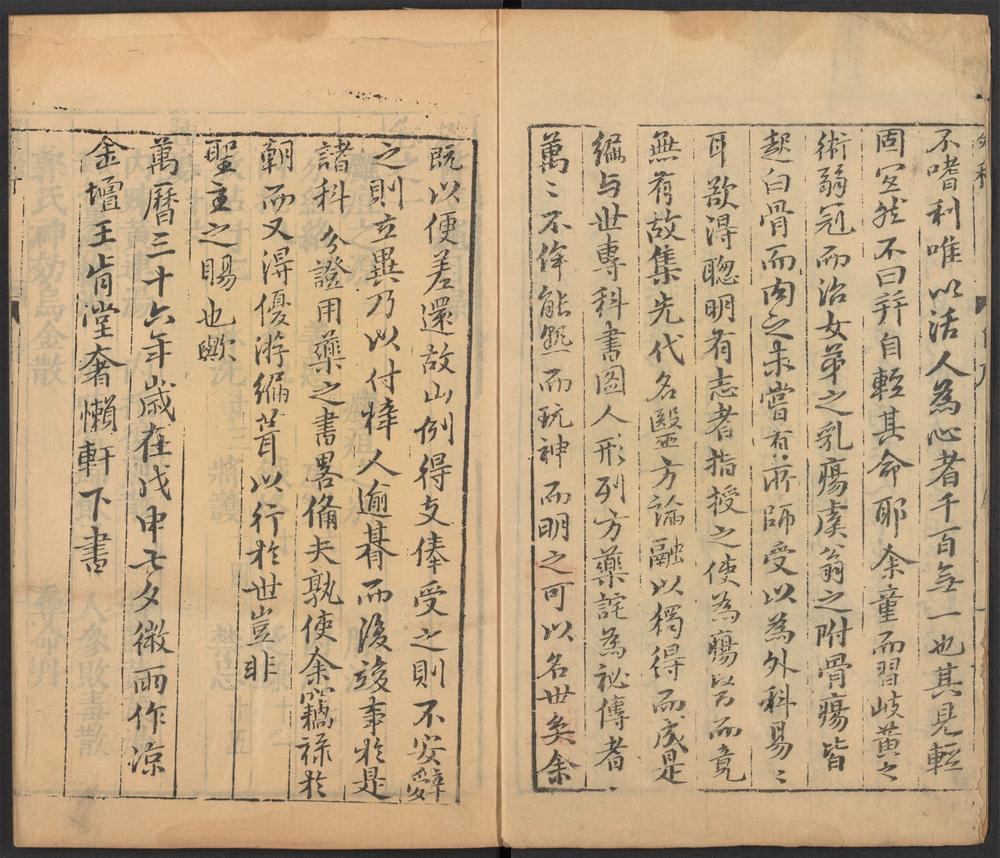 不嗜利唯以活人為心者千百無一也其見輕
固宜然不曰并自輕其命耶余童而習岐黄之
術弱冠而治女弟之乳瘍虞翁之附骨瘍皆
起白骨而肉之未嘗有所師受以為外科易〻
耳欲得聰明有志者指授之使為瘍醫而竟
無有故集先代名毉方論融以獨得而成是
編与世專科書圖人形列方藥詫為祕傳者
萬〻不侔能熟而玩神而明之可以名世矣余
既以便差還故山例得支俸受之則不安辭
之則立異乃以付梓人逾朞而後竣事於是
諸科分證用藥之書畧備夫孰使余竊祿於
朝而又得優游編葺以行於世豈非
聖主之賜也歟
萬曆三十六年歲在戊申七夕微雨作涼
金壇王肯堂奢懶軒下書